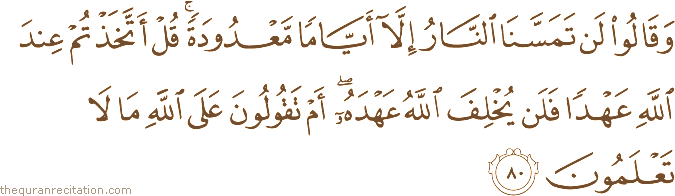 وَقَالُوا۟ لَن تَمَسَّنَا ٱلنَّارُ إِلَّآ أَيَّامًا مَّعْدُودَةً ۚ قُلْ أَتَّخَذْتُمْ عِندَ
ٱللَّهِ عَهْدًا فَلَن يُخْلِفَ ٱللَّهُ عَهْدَهُۥٓ ۖ أَمْ تَقُولُونَ عَلَى ٱللَّهِ مَا لَا
تَعْلَمُونَ ٨٠
thequranrecitation.com